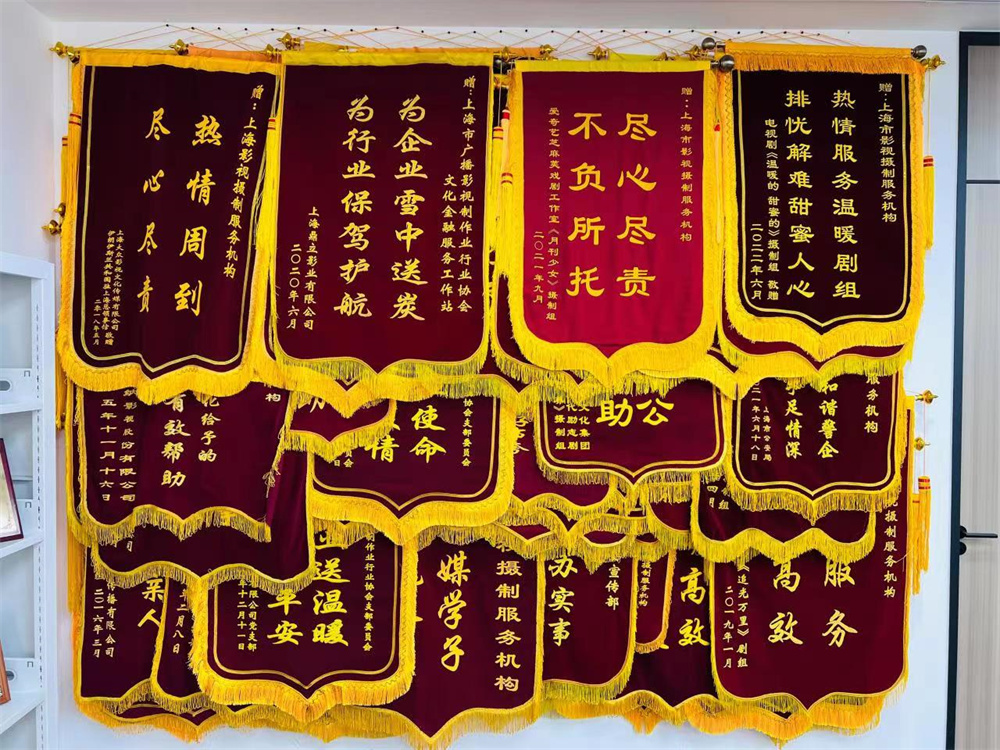 赠：上海影视摄制服务机构
热情周到
尽心尽责
上海大众影视文化传媒有限公司
伊朗伊斯兰共和国驻上海总领事馆 敬赠
二零一八年五月
赠：上海市广播影视制作业行业协会
文化金融服务工作站
为企业雪中送炭
为行业保驾护航
上海鼎立影业有限公司
二〇二〇年六月
赠：上海市影视摄制服务机构
尽心尽责
不负所托
爱奇艺芝麻荚戏剧工作室《月刊少女》摄制组
二〇二一年九月
赠：上海市影视摄制服务机构
热情服务温暖剧组
排忧解难甜蜜人心
电视剧《温暖的 甜蜜的》摄制组 敬赠
二〇二二年六月
构
给予的
有效帮助
影股份有限公司
五年十一月十六日
协会支部委员会
使命
情
公
助
文化集团
摄制组
服务机构
和谐警企
手足情深
上海市公安局
二一年六月十八日
四月
亲人
播有限公司
二〇一六年三月
二月八日
制作业行业协会支部委员会
送温暖
平安
限公司党支部
年十二月十一日
摄制服务机构
媒学子
宣传部
苏实事
摄制服务机构
高效
摄制服务机构
服务
高效
《追光万里》剧组
二〇一九年一月